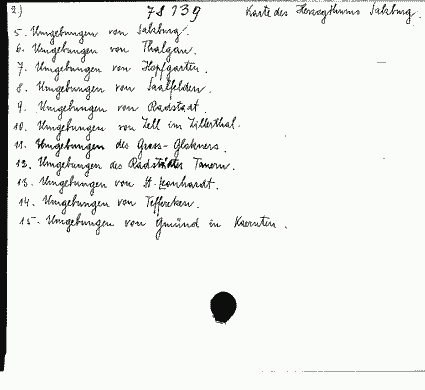 2.) 78 139 Karte des Herzogthums Salzburg.
5. Umgebungen von Salzburg.
6. Umgebungen von Thalgau.
7. Umgebungen von Hopfgarten.
8. Umgebungen von Saalfelden.
9. Umgebungen von Radstadt.
10. Umgebungen von Zell im Zillerthal.
11. Umgebungen des Gross-Glokners.
12. Umgebungen des Radstädter Tauern.
13. Umgebungen von St. Leonhardt.
14. Umgebungen von Teffereken.
15. Umgebungen von Gmünd in Kaernten.